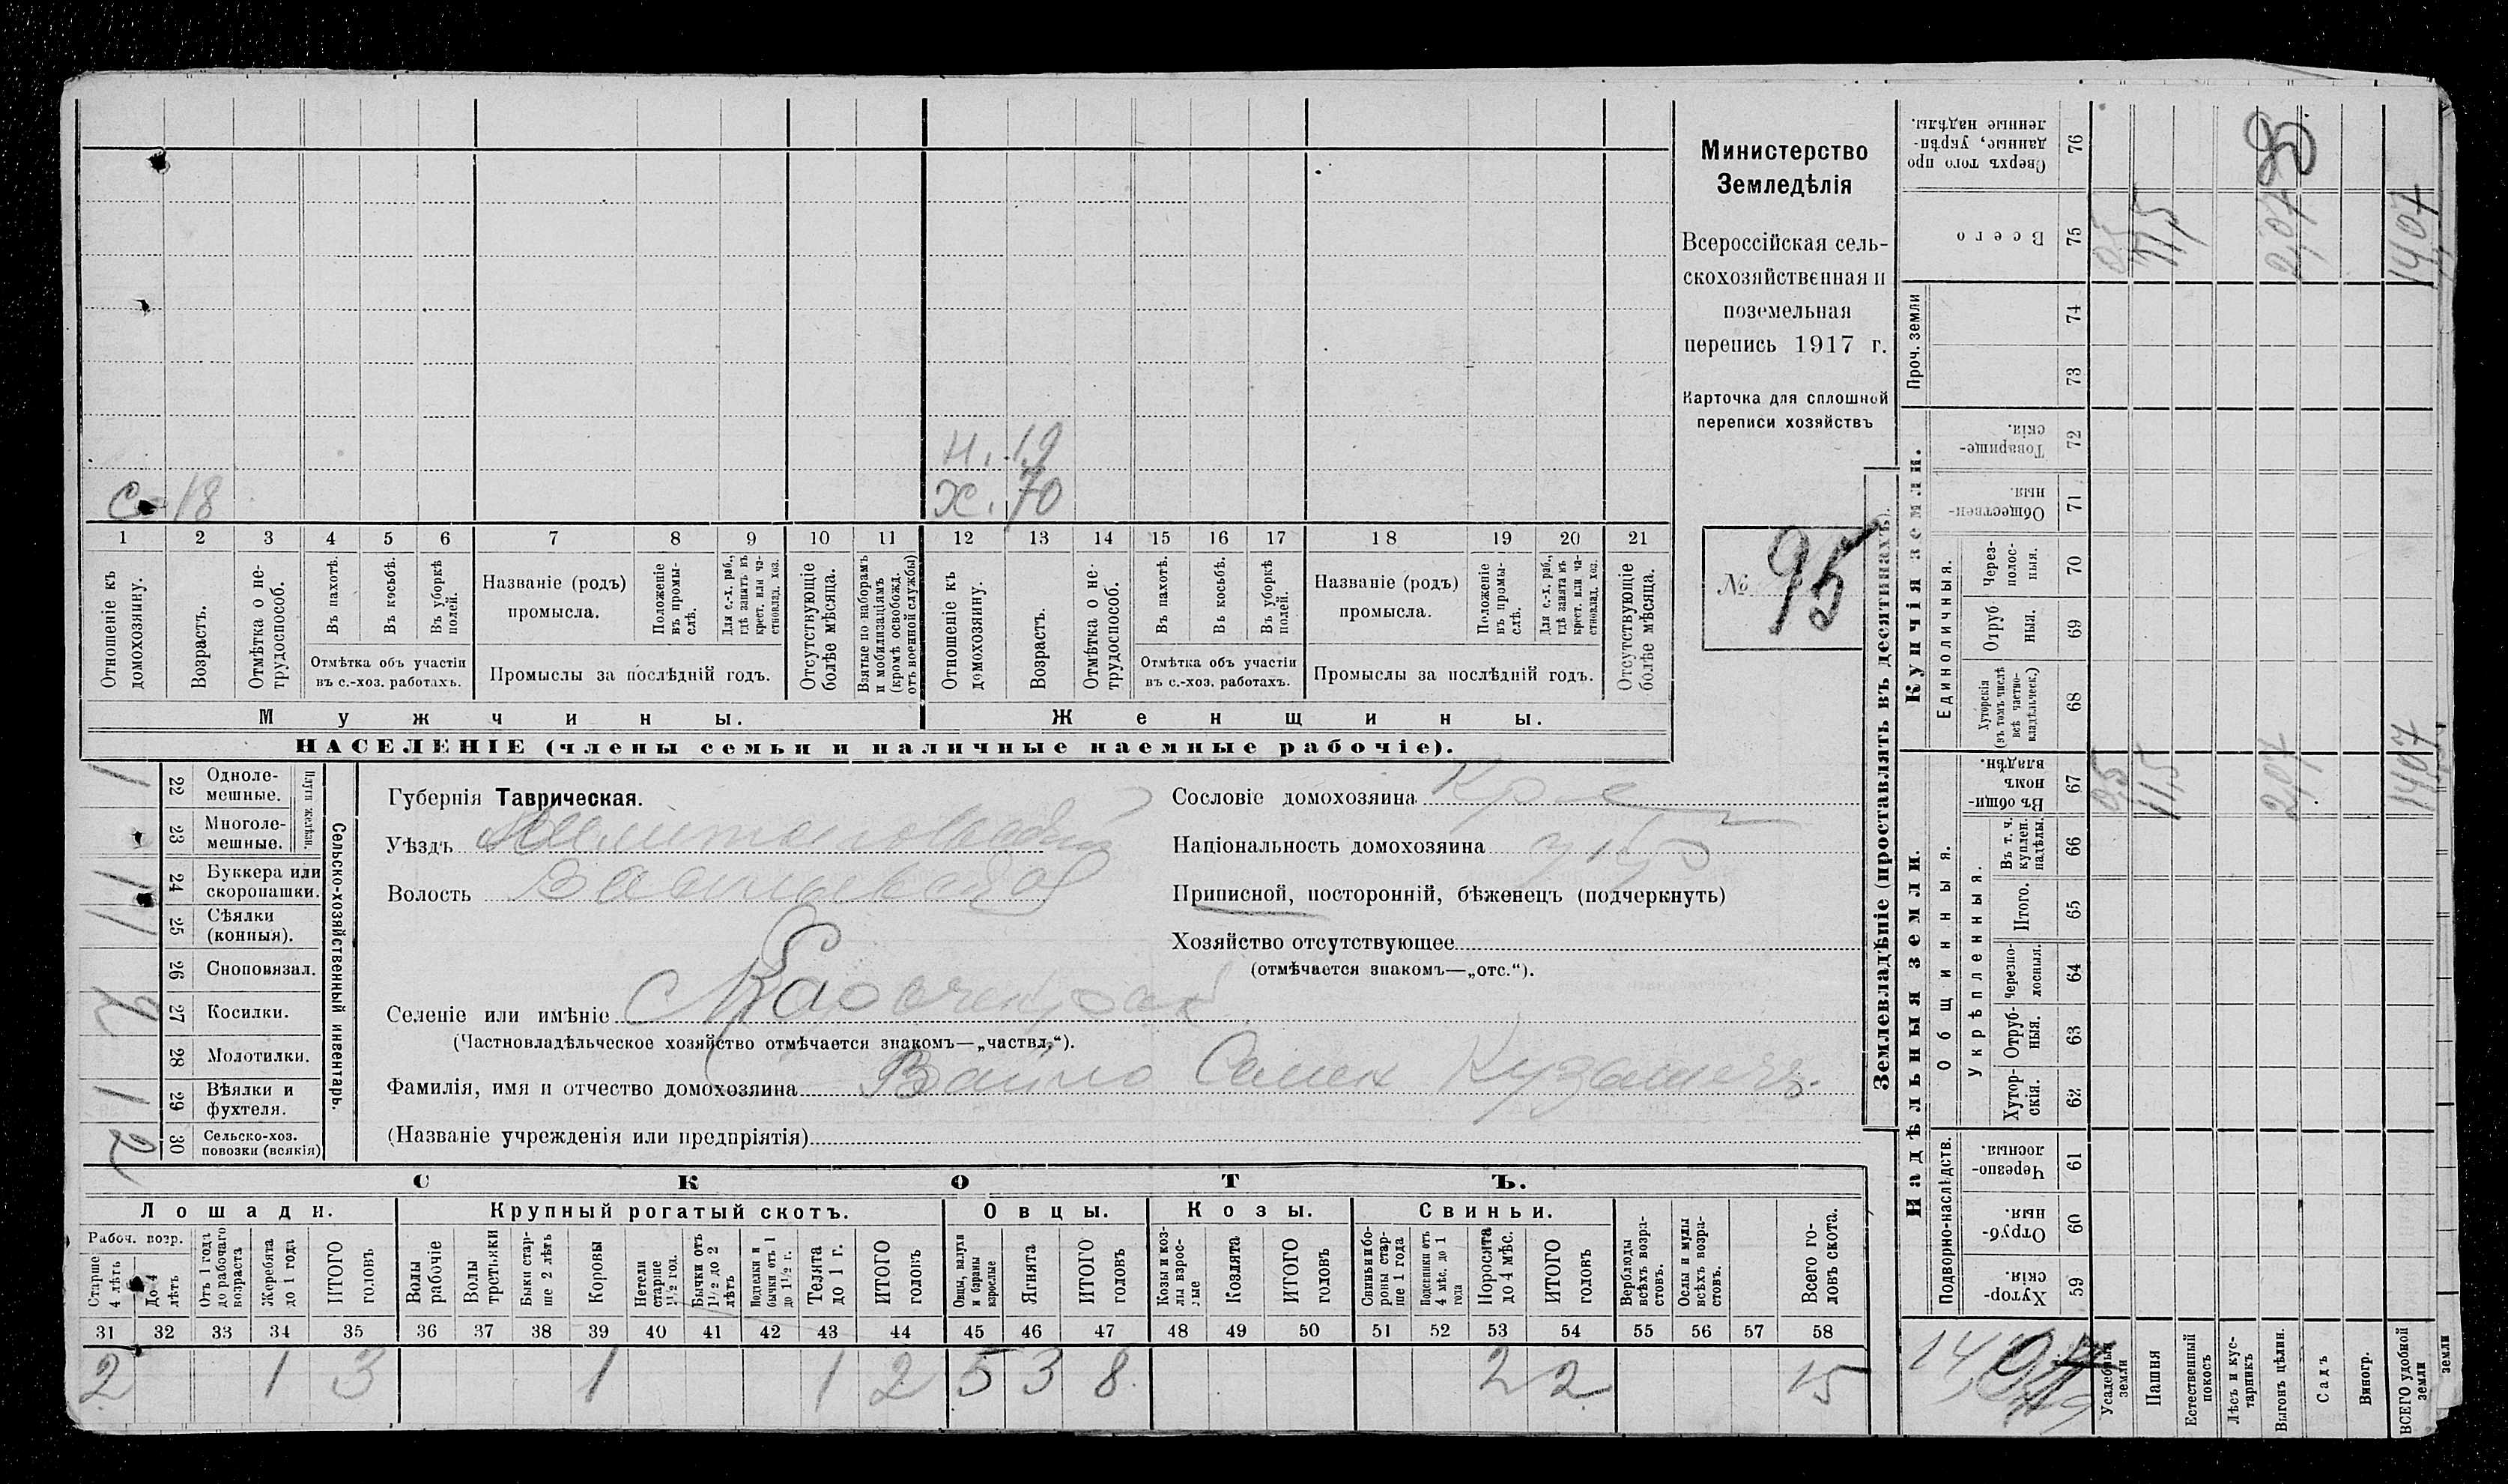 Министерство
Земледѣлія
Всероссійская сель-
скохозяйственная и
поземельная
перепись 1917 г.
Карточка для сплошной
переписи хозяйствъ
№ 95
н. 19
с. 18
ж. 70
1 2 3 4 5 6 7 8 9 10 11 12 13 14 15 16 17 18 19 20 21
Отношеніе къ домохозяину.
Возрастъ.
Отмѣтка о не-
трудоспособ.
Въ пахотѣ.
Въ косьбѣ.
Въ уборкѣ полей.
Отмѣтка объ участіи
въ с.-хоз. работахъ.
Названіе (родъ)
промысла.
Положеніе въ промы-
слѣ.
Для с.-х. раб., гдѣ занятъ въ крест. или ча-
стновлад. хоз.
Промыслы за послѣдній годъ.
Отсутствующіе болѣе мѣсяца.
Взятые по наборамъ и мобилизаціямъ (кромѣ освобожд. отъ военной службы)
Отношеніе къ домохозяину.
Возрастъ.
Отмѣтка о не-
трудоспособ.
Въ пахотѣ.
Въ косьбѣ.
Въ уборкѣ полей.
Отмѣтка объ участіи
въ с.-хоз. работахъ.
Названіе (родъ)
промысла.
Положеніе въ промы-
слѣ.
Для с.-х. раб., гдѣ занята въ крест. или ча-
стновлад. хоз.
Промыслы за послѣдній годъ.
Отсутствующіе болѣе мѣсяца.
Мужчины.
Женщины.
НАСЕЛЕНІЕ (члены семьи и наличные наемные рабочіе).
Сельско-хозяйственный инвентарь.
Плуги желѣзн.
1 22 Одноле-
мешные.
23 Многоле-
мешные.
1 24 Буккера или
скоропашки.
1 25 Сѣялки
(конныя).
26 Сноповязал.
27 Косилки.
28 Молотилки.
1 29 Вѣялки и
фухтеля.
2 30 Сельско-хоз.
повозки (всякія)
Губернія Таврическая.
Уѣздъ Мелитопольскій
Волость Васильевская
Селеніе или имѣніе
(Частновладѣльческое хозяйство отмѣчается знакомъ—„частвл.“).
Фамилія, имя и отчество домохозяина
(Названіе учрежденія или предпріятія)
Сословіе домохозяина Кр
Національность домохозяина
Приписной, посторонній, бѣженецъ (подчеркнуть)
Хозяйство отсутствующее
(отмѣчается знакомъ—„отс.“).
СКОТЪ.
Лошади.
Крупный рогатый скотъ.
Овцы.
Козы.
Свиньи.
Рабоч. возр.
Старше 4 лѣтъ
До 4 лѣтъ
Отъ 1 года до рабочаго возраста
Жеребята до 1 года
ИТОГО головъ
Волы рабочіе
Волы третьяки
Быки стар-
ше 2 лѣтъ
Коровы
Нетели старше 1½ год.
Бычки отъ 1½ до 2 лѣтъ
Подтелки и бычки отъ 1 до 1½ г.
Телята до 1 г.
ИТОГО головъ
Овцы, валухи и бараны взрослые
Ягнята
ИТОГО головъ
Козы и коз-
лы взрос-
лые
Козлята
ИТОГО головъ
Свиньи и бо-
ровы стар-
ше 1 года
Подсвинки отъ 4 мѣс. до 1 года
Поросята до 4 мѣс.
ИТОГО головъ
Верблюды всѣхъ возра-
стовъ.
Ослы и мулы всѣхъ возра-
стовъ.
Всего го-
ловъ скота.
31 32 33 34 35 36 37 38 39 40 41 42 43 44 45 46 47 48 49 50 51 52 53 54 55 56 57 58
2 1 3 1 1 2 5 3 8 2 2 15
Землевладѣніе (проставлять въ десятинахъ).
Купчія земли.
Надѣльныя земли.
Проч. земли
Единоличныя.
Общинныя.
Укрѣпленныя.
Подворно-наслѣдств.
Сверхъ того про
данные, укрѣп-
ленные надѣлы. 76
Всего 75 0,5 11,5 2,07 14,07
74
73
Товарище-
скія. 72
Обществен-
ныя. 71
Через-
полос-
ныя. 70
Отруб
ныя. 69
Хуторскія
(въ томъ числѣ
всѣ частно-
владѣльческ.) 68
Въ общи-
номъ
владѣн. 67 0,5 11,5 2,07 14,07
Въ т. ч.
куплен.
надѣлы. 66
Итого. 65
Черезпо-
лосныя. 64
Отруб-
ныя. 63
Хутор-
скія. 62
Черезпо-
лосныя. 61
Отруб-
ныя. 60
Хутор-
скія. 59
Усадебныя земли
Пашня
Естественный покосъ
Лѣсъ и кус-
тарникъ
Выгонъ цѣлин.
Садъ
Виногр.
ВСЕГО удобной земли
земли